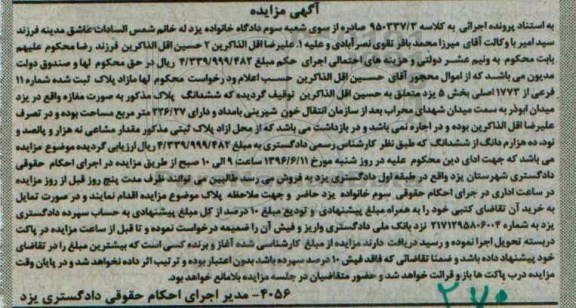 آگهی مزایده
به استناد پرونده اجرائی به کلاسه 950337/3 صادره از سوی شعبه سوم دادگاه خانواده یزد له خانم شمس السادات عاشق مدینه فرزند
سید امیر با وکالت آقای میرزا محمد باقر تقوی نصرآبادی و علیه 1. علیرضا اقل الذاکرین 2 حسین اقل الذاکرین فرزند رضا محکوم علیهم
بابت محکوم به ونیم عشر دولتی و هزینه های احتمالی اجرای حکم مبلغ 4/339/999/482 ریال در حق محکوم لها و صندوق دولت
مدیون می باشند که از اموال محجور آقای حسین اقل الذاکرین حسب اعلام ودرخواست محکوم لها مازاد پلاک ثبت شده شماره 11
فرعی از 1773 اصلی بخش 5 یزد متعلق به حسین اقل الذاکرین توقیف گردیده که ششدانگ پلاک مذکور به صورت مغازه واقع در یزد
میدان ابوذر به سمت میدان شهدای محراب بعد از سازمان انتقال خون شیرینی بامداد و دارای 336/27 متر مربع مساحت بوده و در تصرف
علیرضا اقل الذاکرین بوده و در اجاره نمی باشد و در بازداشت می باشد که از محل ازاد پلاک ثبتی مذکور مقدار مشاعی نه هزار و پانصد و
نود، ده هزارم دانگ از ششدانگ که طبق نظر کارشناس رسمی دادگستری به مبلغ 4/339/999/482 ریال ارزیابی گردیده موضوع مزایده
می باشد که جهت ادای دین محکوم علیه در روز شنبه مورخ 1396/6/11 ساعت 9 الی 10 صبح از طریق مزایده در اجرای احکام حقوقی
دادگستری شهرستان یزد واقع در طبقه اول دادگستری یزد به فروش می رسد طالبین می توانند ظرف مدت پنج روز قبل از روز مزایده
در ساعت اداری در جرای احکام حقوقی سوم خانواده یزد حاضر و جهت ملاحظه پلاک موضوع مزایده اقدام نمایند و در صورت تمایل
به خرید آن تقاضای کتبی خود را به همراه مبلغ پیشنهادی و تودیع مبلغ 10 درصد از کل مبلغ پیشنهادی به حساب سپرده دادگستری
یزد به شماره 2171295860004 نزد بانک ملی دادگستری واریز و فیش آن را ضمیمه درخواست نموده و تا قبل از ساعت مزایده در پاکت
دربسته تحویل اجرا نموده و رسید دریافت دارند مزایده از مبلغ کارشناسی شده آغاز و برنده کسی است که بیشترین مبلغ را در تقاضای
خود پیشنهاد داده باشد و ضمنا تقاضائی که فاقد فیش 10 درصد سپرده باشد بدون اعتبار بوده و ترتیب اثر داده نخواهد شد و در پایان وقت
مزایده درب پاکت ها باز و قرائت خواهد شد و حضور متقاضیان در جلسه مزایده بلامانع خواهد بود.
4056- مدیر اجرای احکام حقوقی دادگستری یزد
270